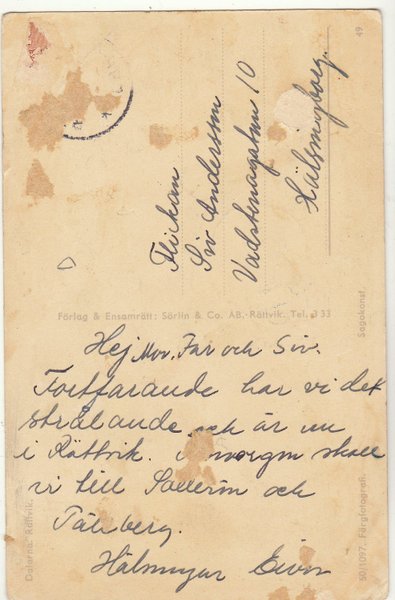 Flickan
Siv Andersson
Vadstenagatan 10
Hälsingborg.
49
Förlag & Ensamrätt: Sörlin & Co. AB. Rättvik. Tel. 333
Sagokonst.
Hej Mor, Far och Siv.
Fortfarande har vi det
strålande och är nu
i Rättvik. I morgon skall
vi till Sollerön och
Tällberg.
Hälsningar Eivor
Dalarna: Rättvik.
50/1097. Färgfotografi.